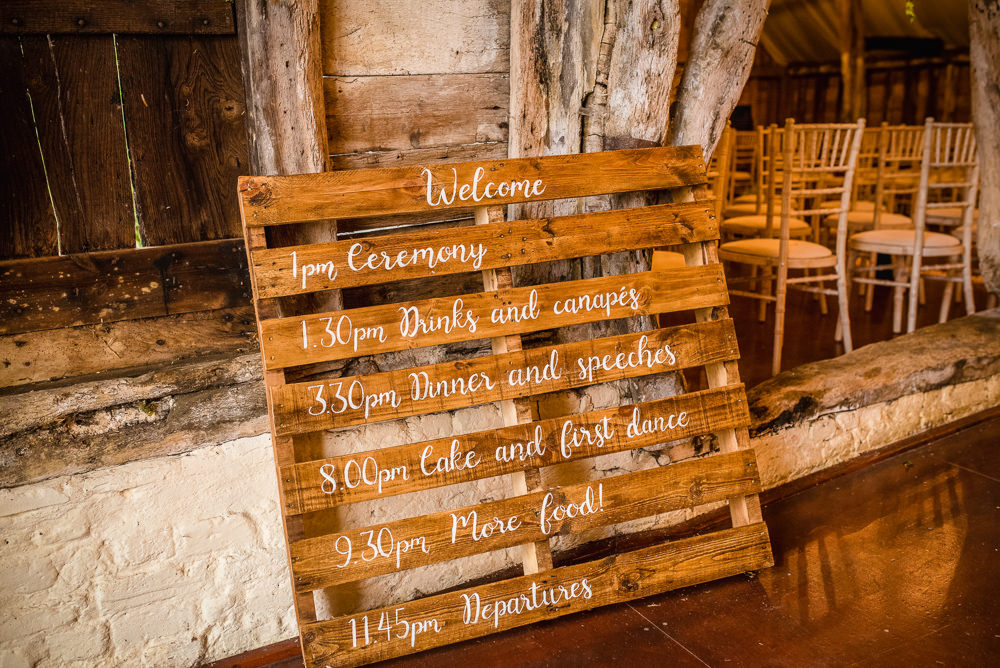 Welcome
1pm Ceremony
1.30pm Drinks and canapés
3.30pm Dinner and speeches
8.00pm Cake and first dance
9.30pm More food!
11.45pm Departures